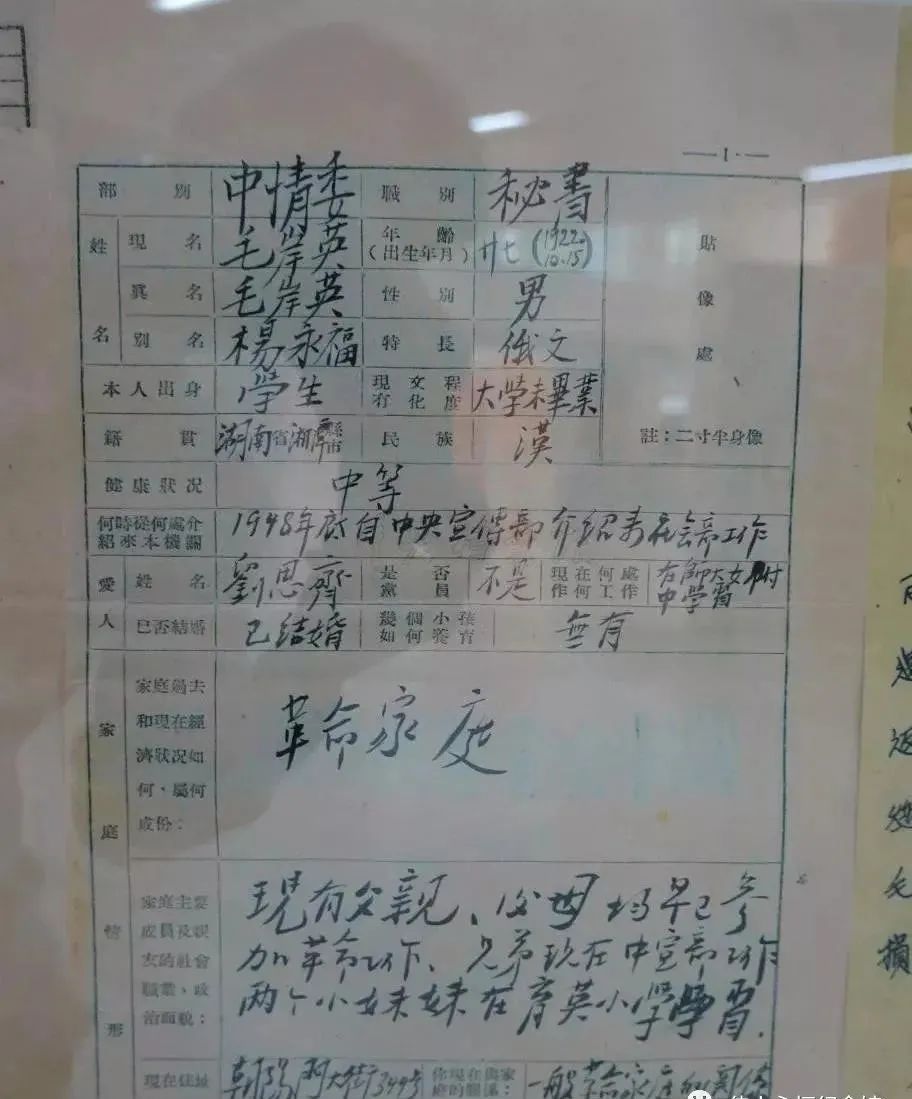 —1.—
部別 中情委 職別 秘書
姓名 現名 毛岸英 年齡(出生年月) 廿七(1922.10.15) 貼像處
眞名 毛岸英 性別 男
別名 楊永福 特長 俄文
本人出身 學生 現有文化程度 大学未畢業
籍貫 湖南省湘潭縣市 民族 漢 註：二寸半身像
健康狀況 中等
何時從何處介紹來本機關 1948年底自中央宣傳部介紹来社会部工作
愛人 姓名 劉思齊 是否黨員 不是 現在何處作何工作 在師大女附中学習
已否結婚 已结婚 幾個小孩如何養育 無有
家庭情形 家庭過去和現在經濟狀況如何、屬何成份： 革命家庭
家庭主要成員及親友的社會職業，政治面貌：
現有父親、父母均早已参
加革命工作、兄弟现在中宣部工作
两个小妹妹在育英小学學習.
現在住址 朝陽门大街 你現在與家庭的關係： 一般革命家庭的関係
而
返
毛
損